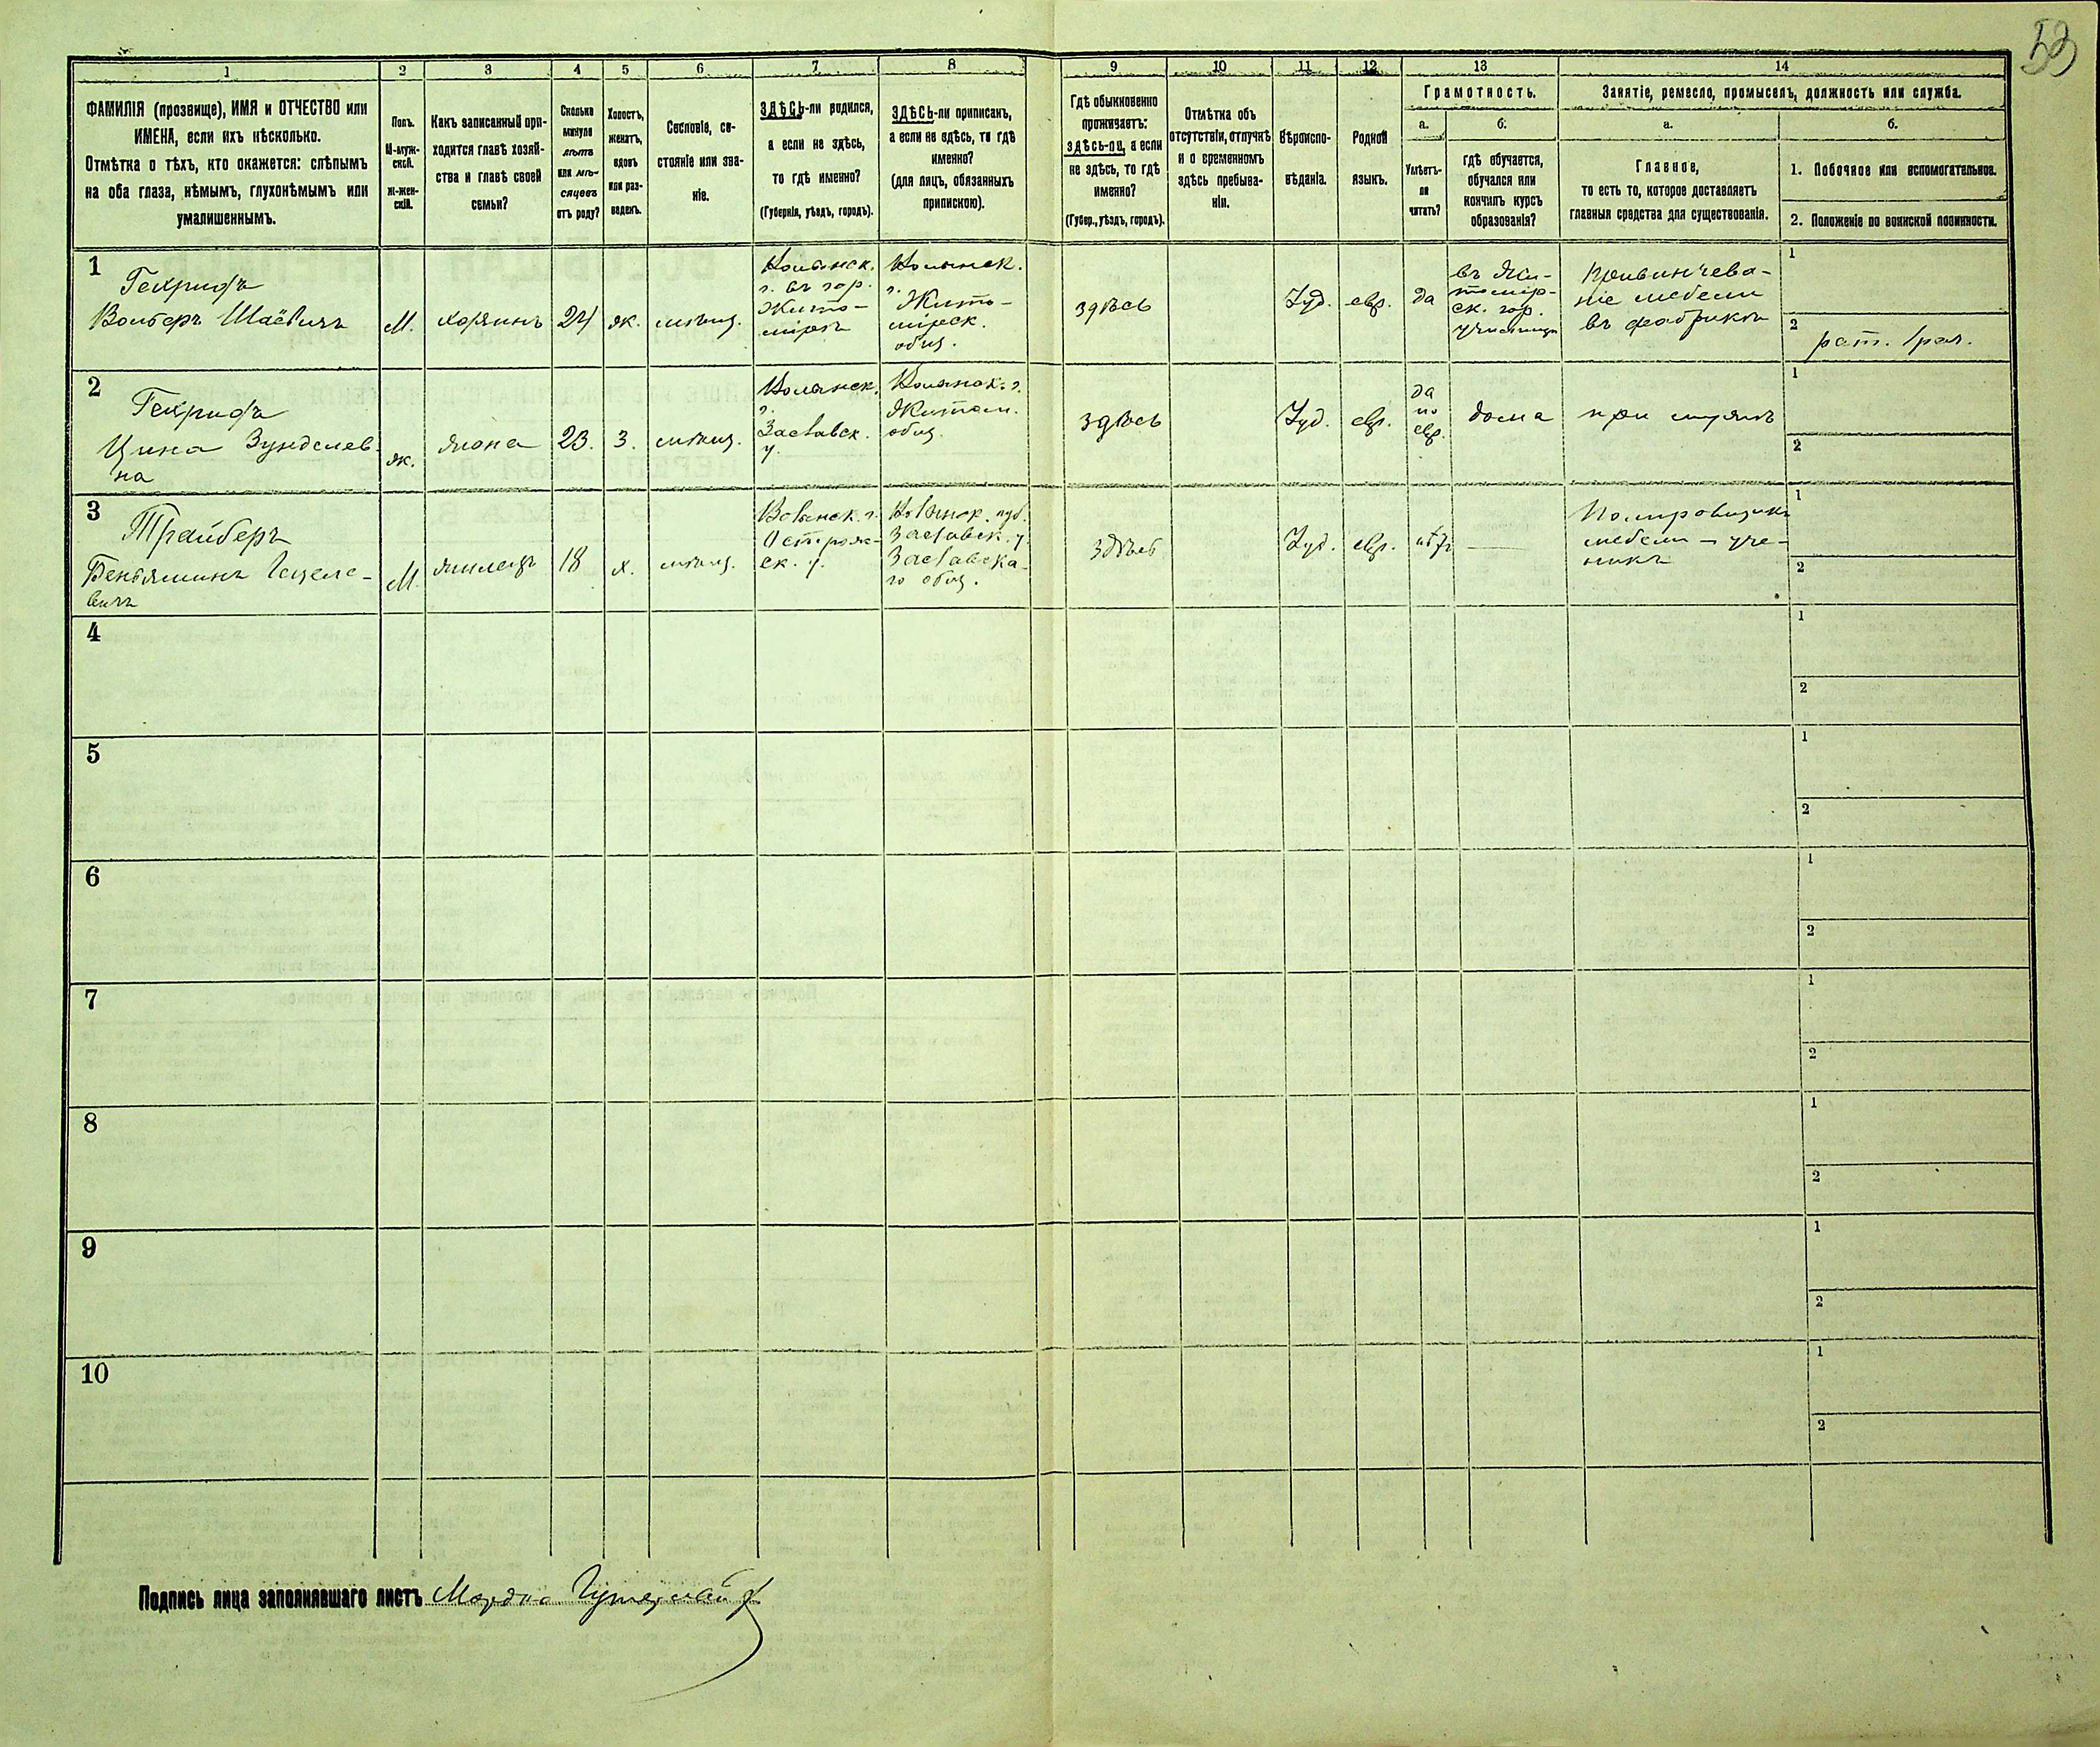 53
1 2 3 4 5 6 7 8 9 10 11 12 13 14
ФАМИЛІЯ (прозвище), ИМЯ и ОТЧЕСТВО или
ИМЕНА, если ихъ нѣсколько.
Отмѣтка о тѣхъ, кто окажется: слѣпымъ
на оба глаза, нѣмымъ, глухонѣмымъ или
умалишеннымъ.
Полъ.
М-муж-
ской.
Ж-жен-
скій.
Какъ записанный при-
ходится главѣ хозяй-
ства и главѣ своей
семьи?
Сколько
минуло
лѣтъ
или мѣ-
сяцевъ
отъ роду?
Холостъ,
женатъ,
вдовъ
или раз-
веденъ.
Сословіе, со-
стояніе или зва-
ніе.
ЗДѢСЬ-ли родился,
а если не здѣсь,
то гдѣ именно?
(Губернія, уѣздъ, городъ).
ЗДѢСЬ-ли приписанъ,
а если не здѣсь, то гдѣ
именно?
(для лицъ, обязанныхъ
припискою).
Гдѣ обыкновенно
проживаетъ:
здѣсь-ли, а если
не здѣсь, то гдѣ
именно?
(Губер., уѣздъ, городъ).
Отмѣтка объ
отсутствіи, отлучкѣ
и о временномъ
здѣсь пребыва-
ніи.
Вѣроиспо-
вѣданіе.
Родной
языкъ.
Грамотность.
а.
Умѣетъ-
ли
читать?
б.
гдѣ обучается,
обучался или
кончилъ курсъ
образованія?
Занятіе, ремесло, промыселъ, должность или служба.
а.
Главное,
то есть то, которое доставляетъ
главныя средства для существованія.
б.
1. Побочное или вспомогательное.
2. Положеніе по воинской повинности.
1
Вольберъ Шаевичъ
М.
хозяинъ
24
ж.
мѣщ.
Волынск.
г. въ гор.
Жито-
мірѣ
Волынск.
г.
Жито-
мірск.
общ.
здѣсь
Іуд.
евр.
да
въ Жи-
томір-
ск. гор.
училищѣ
Привинчева-
ніе мебели
въ фабрикѣ
1
2
2
Цина Зунделев-
на
ж.
жена
23.
З.
мѣщ.
Волынск.
г.
Заславск.
у.
Волынск. г.
Житом.
общ.
здѣсь
Іуд.
евр.
да
по
евр.
дома
при мужѣ
1
2
3
Трайберъ
Беньяминъ Гецеле-
вичъ
М.
жилецъ
18
х.
мѣщ.
Волынск. г.
Острож-
ск. у.
Волынск. губ.
Заславск. у.
Заславска-
го общ.
здѣсь
Іуд.
евр.
нѣтъ
Полировщикъ
мебели - уче-
никъ
1
2
4
1
2
5
1
2
6
1
2
7
1
2
8
1
2
9
1
2
10
1
2
Подпись лица заполнявшаго листъ Мордко